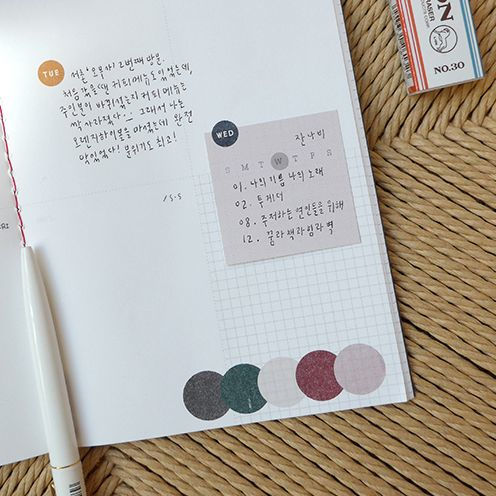 TUE
서촌 오무사! 2번째 방문.
처음 갔을땐 커피메뉴도 있었는데,
주인분이 바뀌셨는지 커피메뉴는
싹 사라졌다. 그래서 나는
오렌지하이볼을 마셨는데 완전
맛있었다! 분위기도 최고!
WED
잔나비
S M T W T F S
01. 나의 기쁨 나의 노래
02. 투게더
08. 주저하는 연인들을 위해
12. 꿈과 책과 힘과 벽
ERASER
NO.30